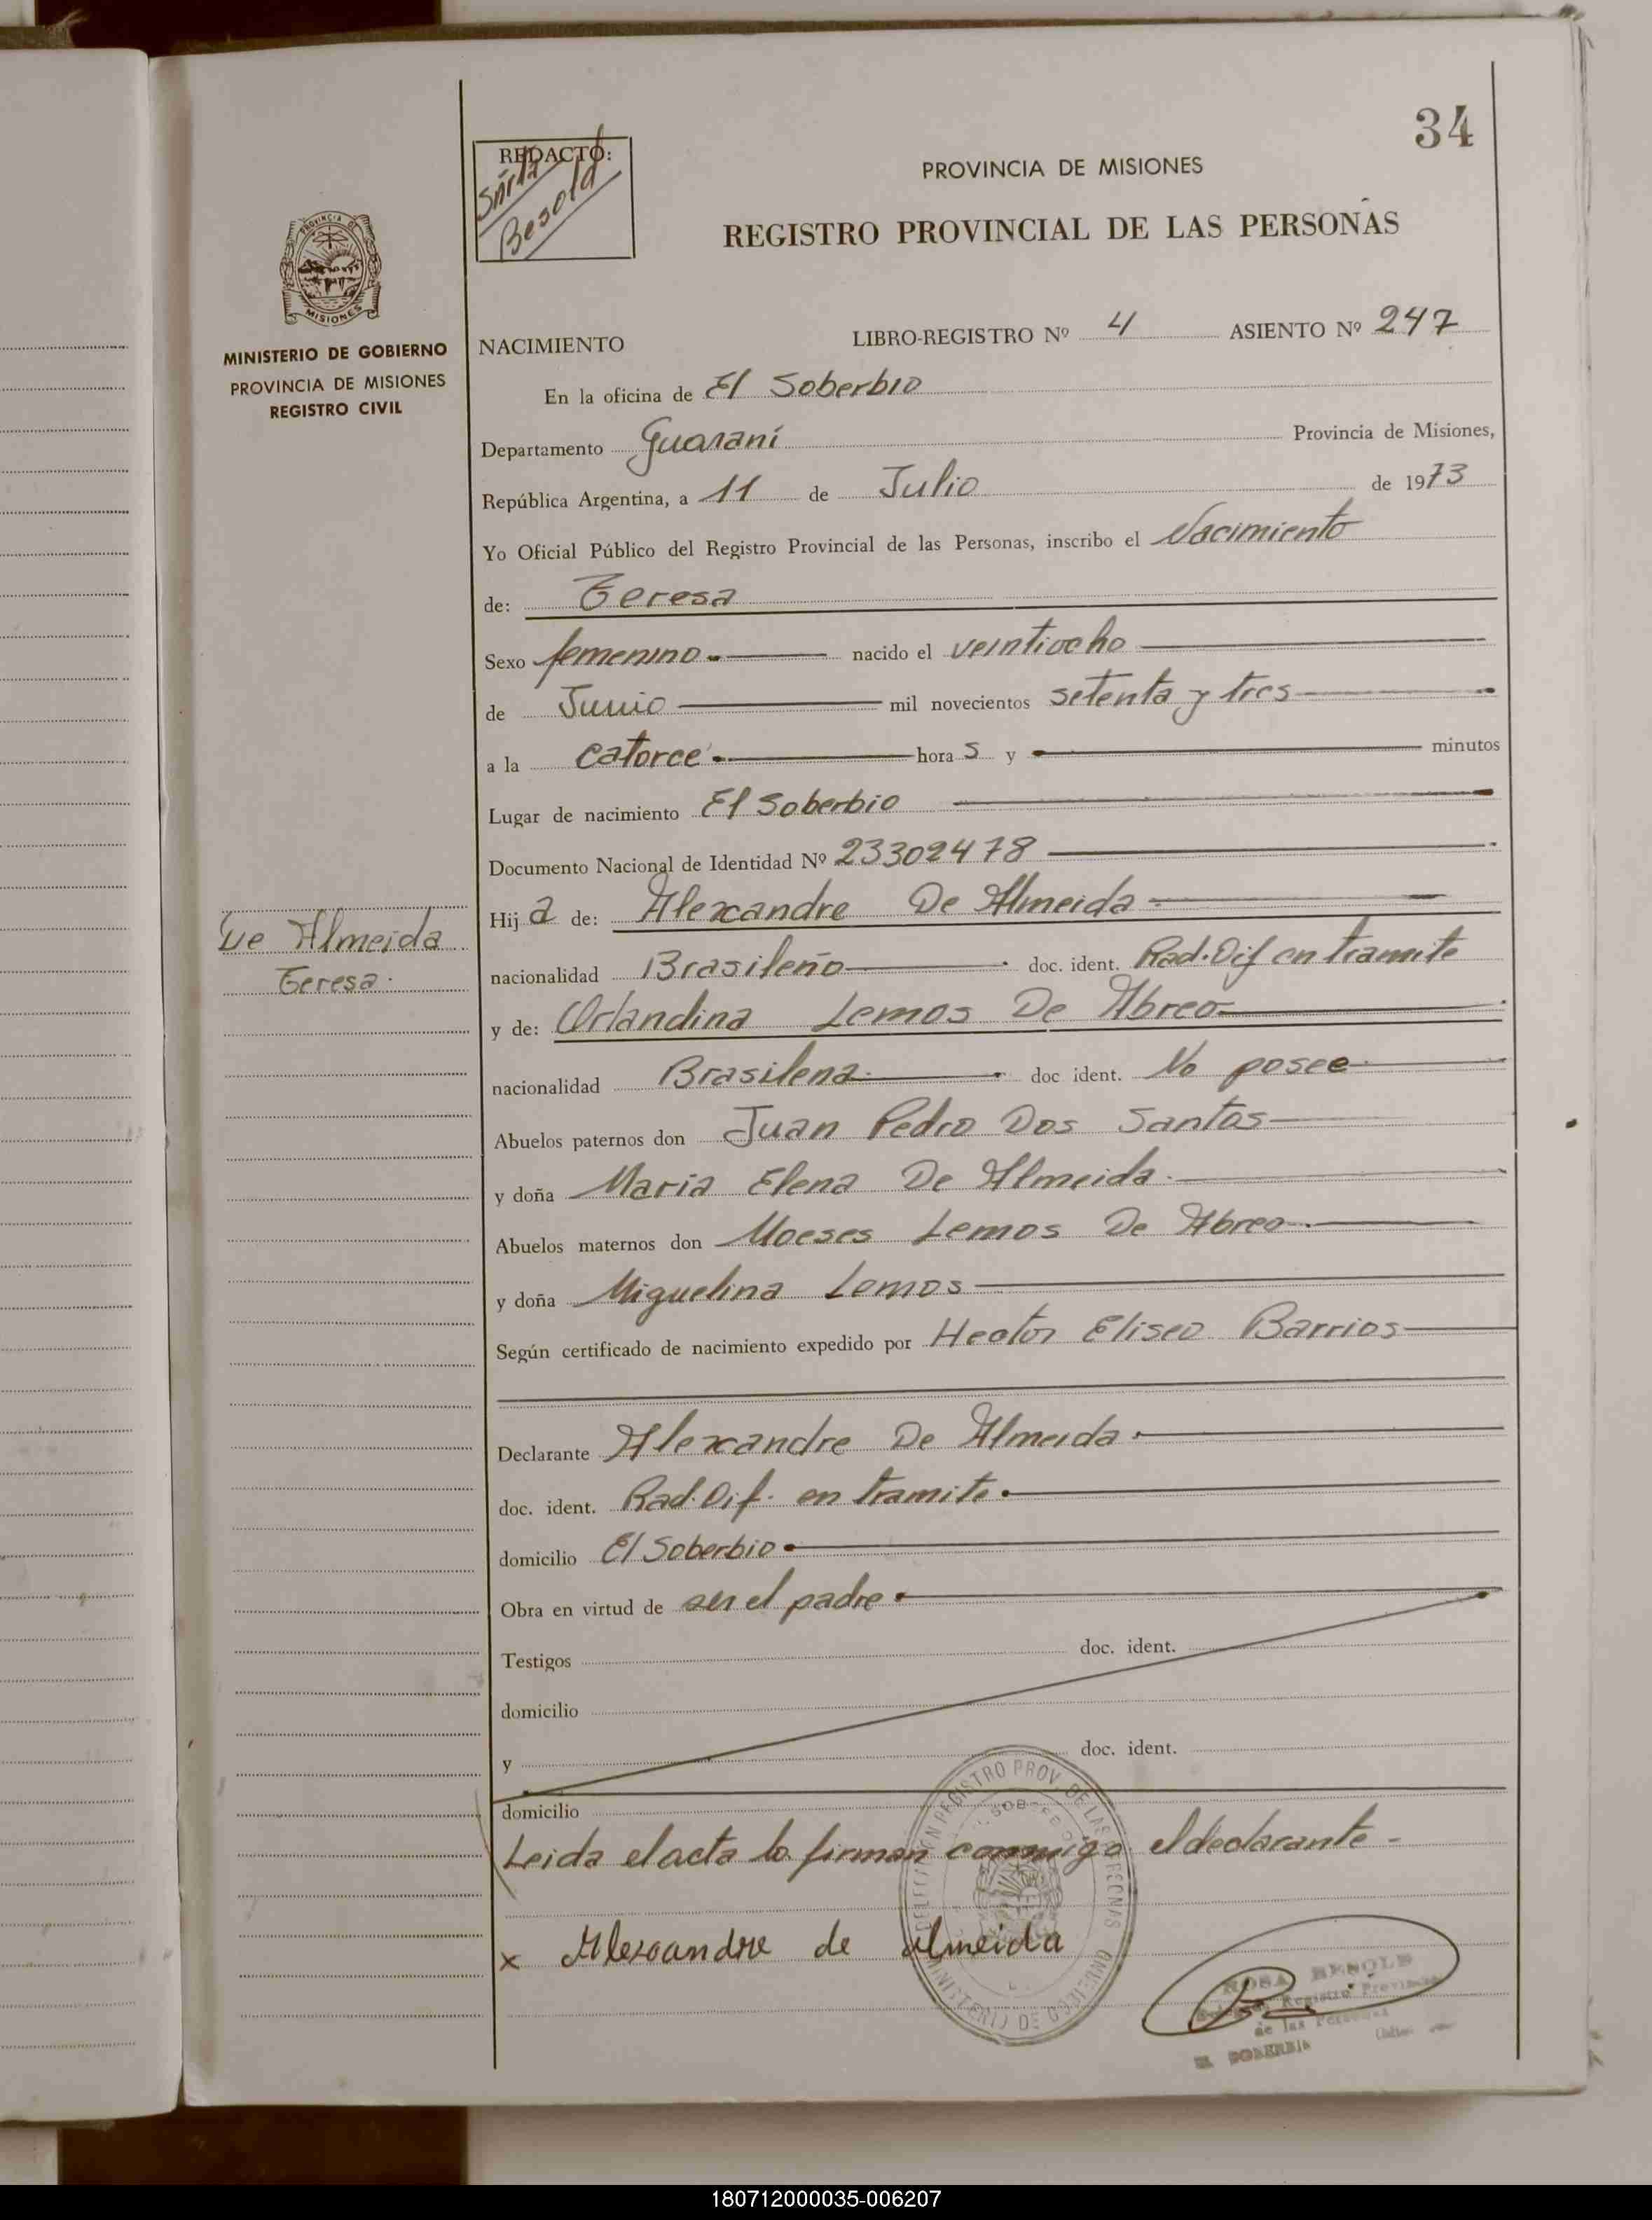 34
REDACTÓ:
Srita
Besold
PROVINCIA DE MISIONES
REGISTRO PROVINCIAL DE LAS PERSONAS
PROVINCIA DE
MISIONES
MINISTERIO DE GOBIERNO
PROVINCIA DE MISIONES
REGISTRO CIVIL
NACIMIENTO LIBRO-REGISTRO Nº 4 ASIENTO Nº 247
En la oficina de El Soberbio
Departamento Guaraní Provincia de Misiones,
República Argentina, a 11 de Julio de 1973
Yo Oficial Público del Registro Provincial de las Personas, inscribo el Nacimiento
de: Teresa
Sexo femenino nacido el veintiocho
de Junio mil novecientos setenta y tres
a la catorce hora s y minutos
Lugar de nacimiento El Soberbio
Documento Nacional de Identidad Nº 23302478
Hij a de: Alexandre De Almeida
De Almeida
Teresa.
nacionalidad Brasileño doc. ident. Rad. Dif en tramite
y de: Orlandina Lemos De Abreo
nacionalidad Brasilena doc ident. No posee
Abuelos paternos don Juan Pedro Dos Santos
y doña Maria Elena De Almeida.
Abuelos maternos don Moeses Lemos De Abreo
y doña Miguelina Lemos
Según certificado de nacimiento expedido por Hector Eliseo Barrios
Declarante Alexandre De Almeida
doc. ident. Rad. Dif. en tramite
domicilio El Soberbio
Obra en virtud de ser el padre
Testigos doc. ident.
domicilio
y doc. ident.
domicilio
Leida el acta la firman conmigo el declarante -
x Alexandre de almeida
ROSA BESOLD
Registro Provincial
de las Personas
EL SOBERBIO
180712000035-006207